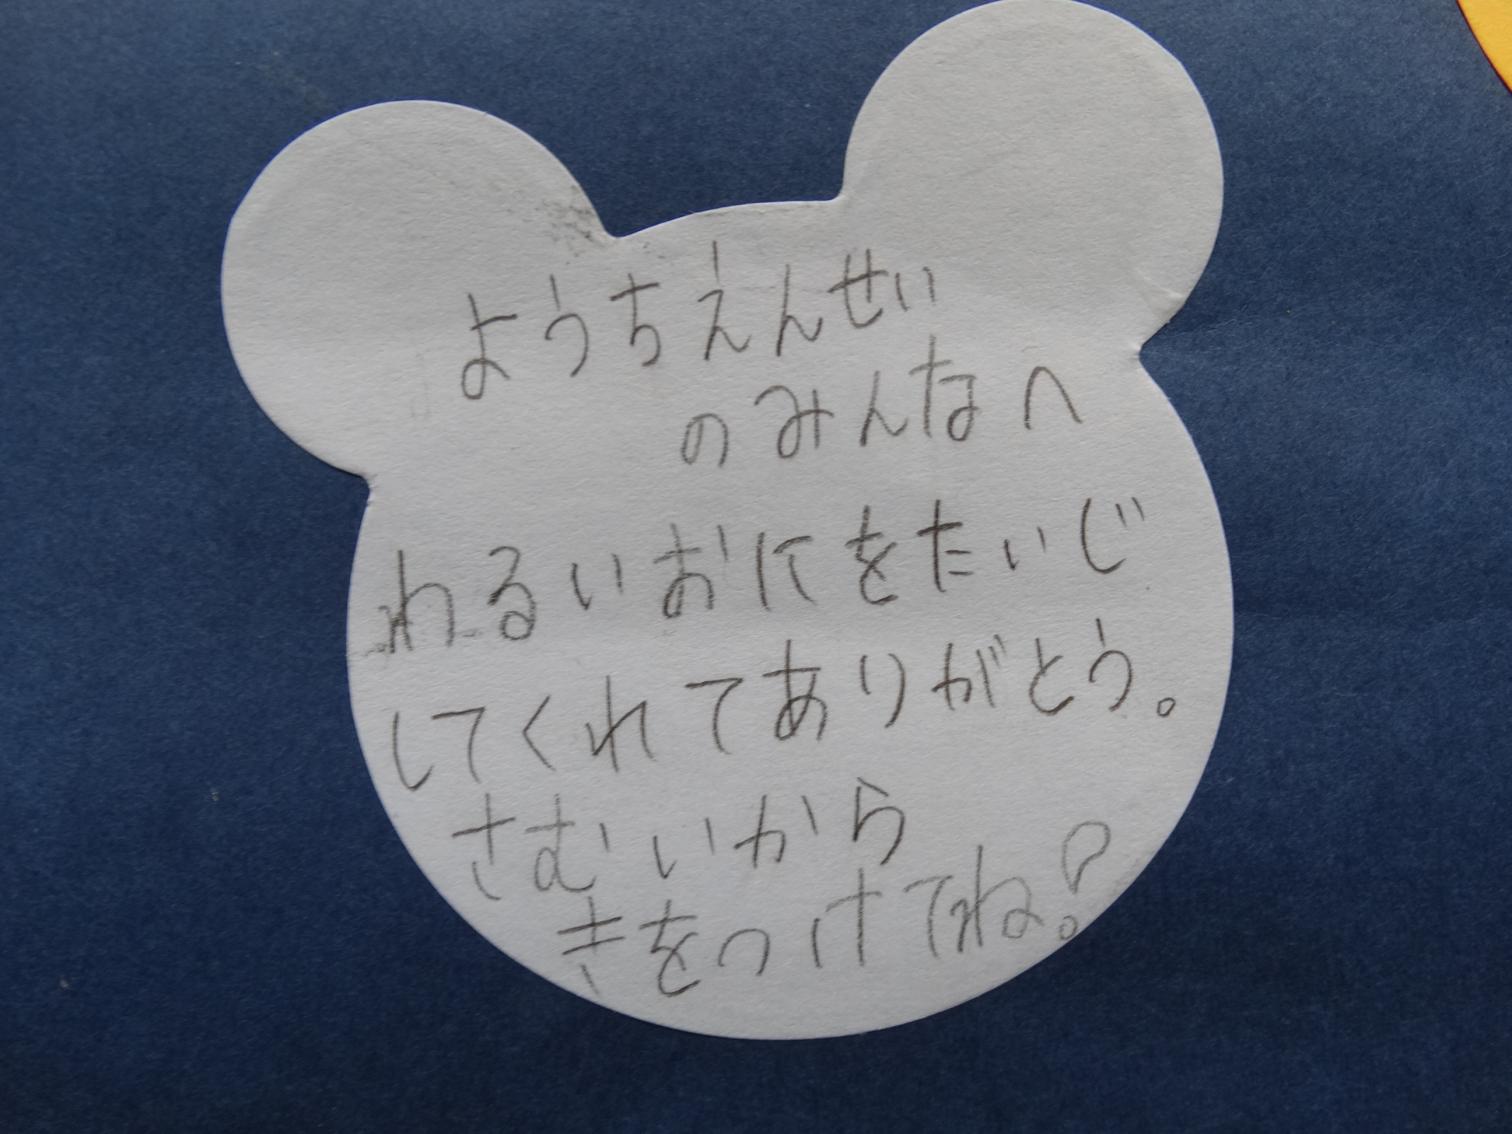 ようちえんせい
のみんなへ
わるいおにをたいじ
してくれてありがとう。
さむいから
きをつけてね!